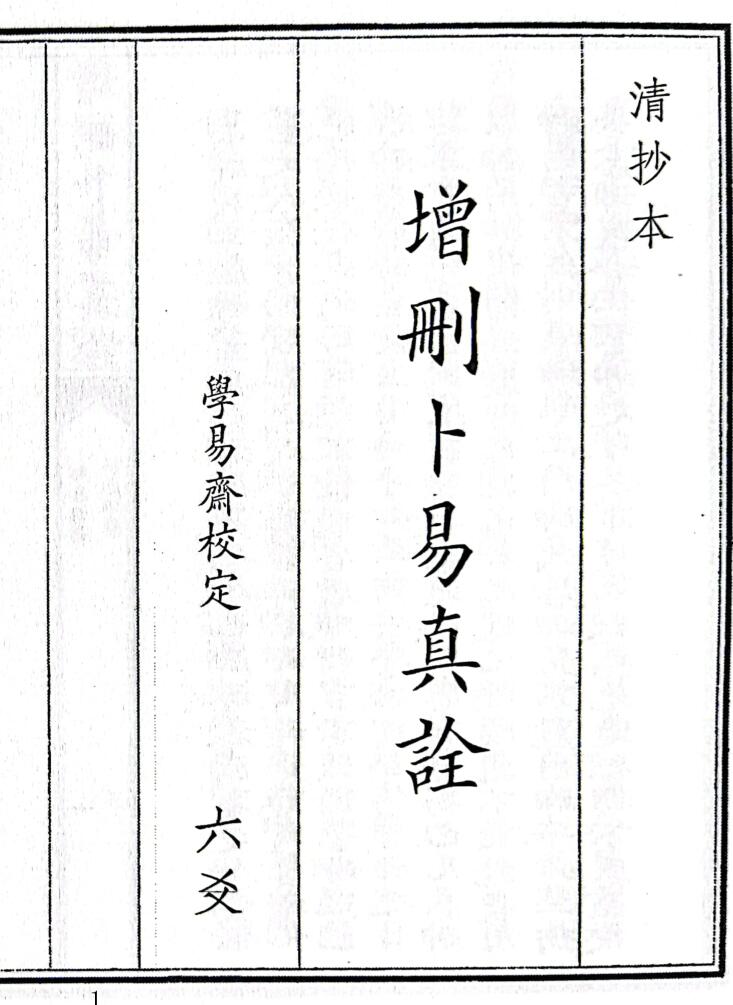 清抄本
增刪卜易真詮
學易齋校定 六爻
1